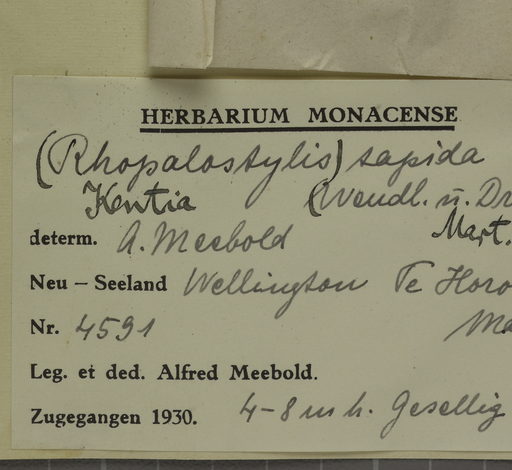 HERBARIUM MONACENSE
(Rhopalostylis) sapida
Kentia (Wendl. u. Dr
determ. A. Meebold Mart.
Neu – Seeland Wellington Te Horo
Nr. 4591 Ma
Leg. et ded. Alfred Meebold.
Zugegangen 1930. 4–8 m h. Gesellig